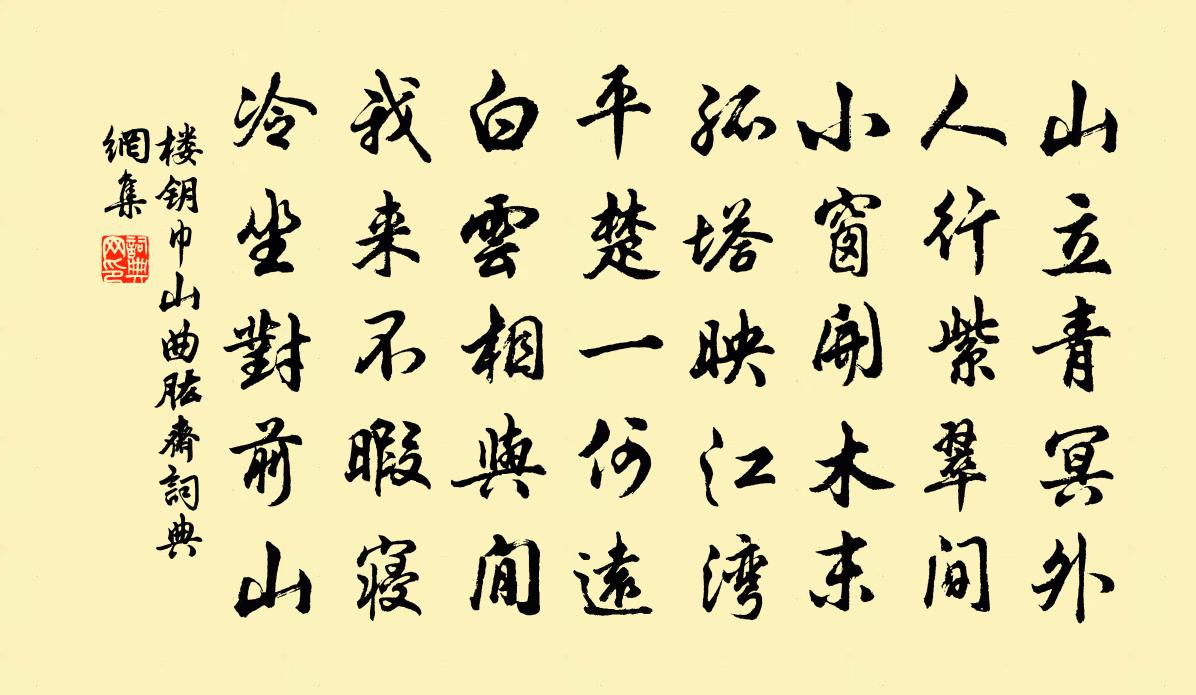 山立青冥外
人行紫翠间
小窗開木末
孤塔映江湾
平楚一何遠
白雲相與閒
我来不暇寝
冷坐對前山
楼钥巾山曲肱齋詞典
網集
詞典
网印